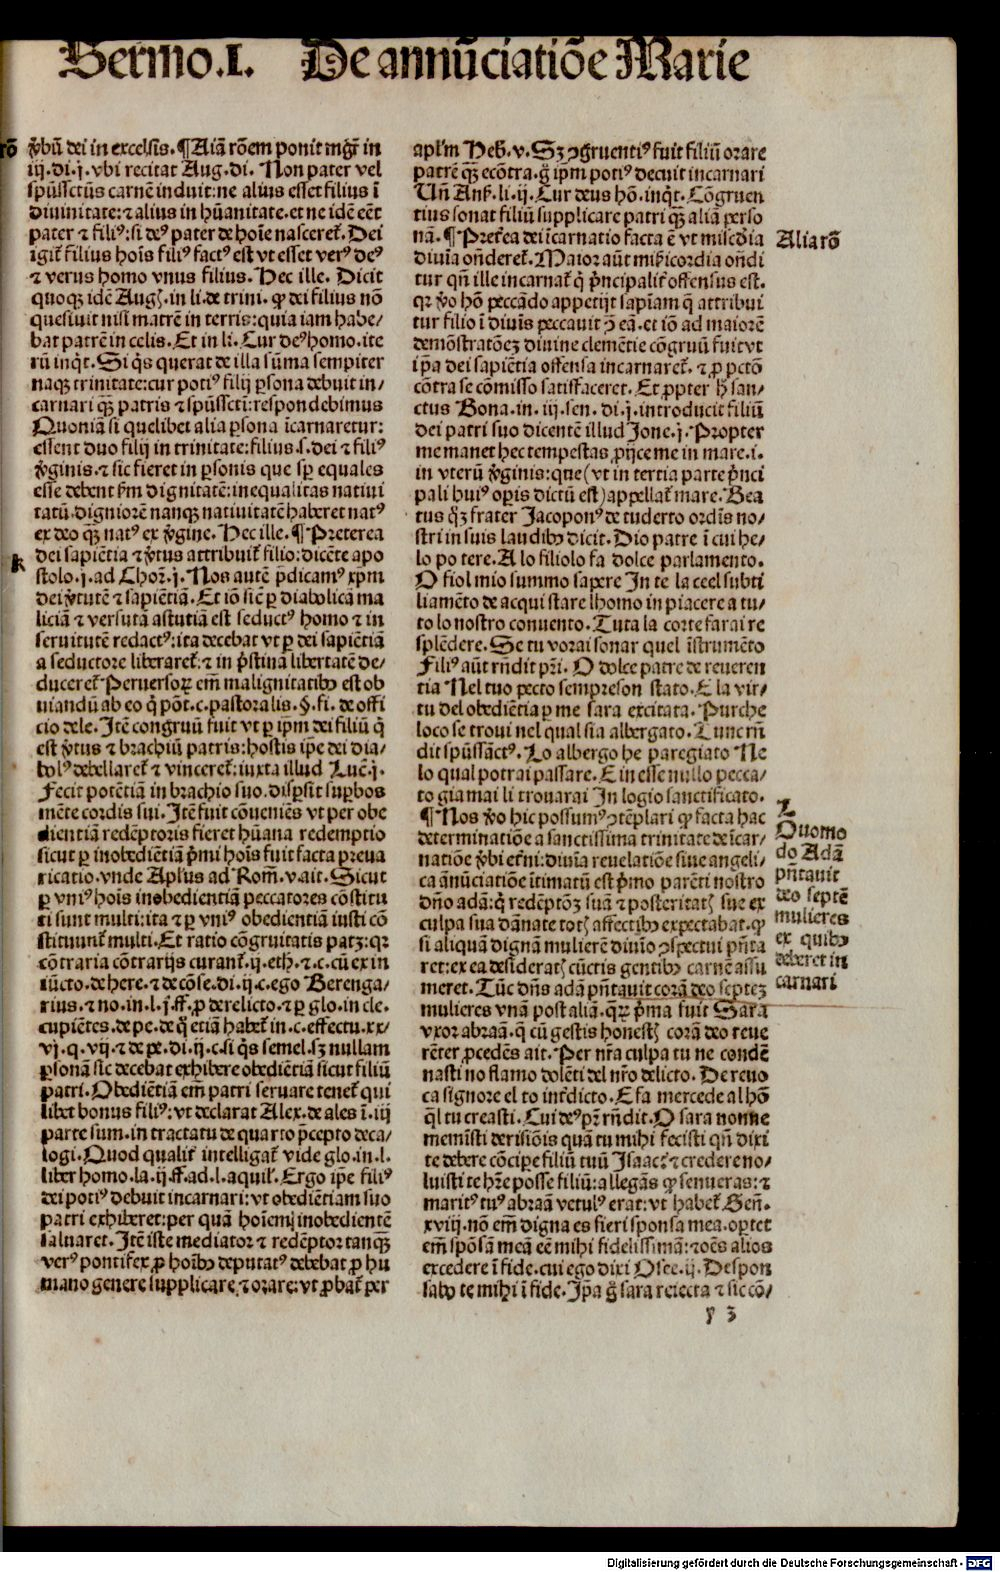 Sermo.I. De annũciatiõe Marie
rõ
v̾bũ dei in excelsis.¶Aiã rõem ponit mgr̃ in
iij.di.j.vbi recitat Aug.di. Non pater vel
spũssctũs carnẽ induit:ne alius esset filius ĩ
diuinitate:⁊ alius in hũanitate.et ne idẽ eẽt
pater ⁊ filiꝰ:si deꝰ pater de hoĩe nasceret᷑. Dei
igit᷑ filius hoĩs filiꝰ factꝰ est vt esset verꝰ deꝰ
⁊ verus homo vnus filius. Hec ille. Dicit
quoqꝫ idẽ Augꝭ.in li.de trini. ꝙ dei filius nõ
quesiuit nisi matrẽ in terris:quia iam habe/
bat patrẽ in celis. Et in li. Cur deꝰ homo.ite
rũ inqͥt. Si qͥs querat de illa sũma sempiter
naqꝫ trinitate:cur potiꝰ filij ꝑsona debuit in/
carnari qꝫ̃ patris ⁊ spũssctĩ:respondebimus
Quoniã si quelibet alia ꝑsona ĩcarnaretur:
essent duo filij in trinitate:filius.s.dei ⁊ filiꝰ
v̾ginis.⁊ sic fieret in ꝑsonis que sꝑ equales
esse debent ẜm dignitatẽ:inequalitas natiui
tatũ.digniorẽ nanqꝫ natiuitatẽ haberet natꝰ
ex deo qꝫ̃ natꝰ ex v̾gine. Hec ille.¶Preterea
dei sapiẽtia ⁊ v̾tus attribuit᷑ filio:dicẽte apo
k
stolo.j.ad Chor̃.j. Nos autẽ p̃dicamꝰ xp̃m
dei v̾tutẽ ⁊ sapiẽtiã. Et iõ sic̃ ꝑ diabolicã ma
liciã ⁊ versutã astutiã est seductꝰ homo ⁊ in
seruitutẽ redactꝰ:ita decebat vt ꝑ dei sapiẽtiã
a seductore liberaret᷑:⁊ in pͥstinã libertatẽ de/
duceret᷑ Peruersoꝝ em̃ malignitatibꝰ est ob
uiandũ ab eo qͥ põt.c.pastoralis.§.fi.de offi
cio dele. Itẽ congruũ fuit vt ꝑ ip̃m dei filiũ qͥ
est v̾tus ⁊ brachiũ patris:hostis ip̃e dei dia/
bolꝰ debellaret᷑ ⁊ vinceret᷑:iuxta illud Luẽ.j.
Fecit potẽtiã in brachio suo.disꝑsit suꝑbos
mẽte cordis sui. Itẽ fuit cõueniẽs vt per obe
dientiã redẽptoris fieret hũana redemptio
sicut ꝑ inobediẽtiã pͥmi hoĩs fuit facta preua
ricatio.vnde Apl̃us ad Rom̃.v.ait. Sicut
ꝑ vniꝰ hoĩs inobedientiã peccatores cõstitu
ti sunt multi:ita ⁊ ꝑ vniꝰ obedientiã iusti cõ
stituunt᷑ multi. Et ratio cõgruitatis patꝫ:qꝛ
cõtraria cõtrarijs curant᷑.ij.eth̃.⁊.c.cũ ex in
iũcto.de here.⁊ de cõse.di.ij.c.ego Berenga/
rius.⁊ no.in.l.j.ff.ꝓ derelicto.⁊ ꝑ glo.in cle.
cupiẽtes.de pe.de qͣ etiã habet᷑ in.c.effectu.xx/
vj.q.vij.⁊ de pe.di.ij.c.si qͥs semel.sꝫ nullam
ꝑsonã sic decebat exhibere obediẽtiã sicut filiũ
patri. Obediẽtiã em̃ patri seruare tenet᷑ qui
libet bonus filiꝰ:vt declarat Alex.de ales ĩ.iij
parte sum.in tractatu de quarto p̃cepto deca/
logi. Quod qualit᷑ intelligat᷑ vide glo.in.l.
liber homo.la.ij.ff.ad.l.aquil'. Ergo ip̃e filiꝰ
dei potiꝰ debuit incarnari:vt obediẽtiam suo
patri exhiberet:per quã hoĩem inobedientẽ
saluaret. Itẽ iste mediator ⁊ redẽptor tanqꝫ̃
verꝰ pontifex ꝓ hoĩbꝰ deputatꝰ debebat ꝓ hu
mano genere supplicare ⁊ orare:vt ꝓbat᷑ per
apl'm Heb̃.v. Sꝫ ꝯgruentiꝰ fuit filiũ orare
patrẽ qꝫ̃ ecõtra.g̊ ip̃m potiꝰ decuit incarnari
Uñ Anẜ.li.ij. Cur deus hõ.inqͥt. Cõgruen
tius sonat filiũ supplicare patri qꝫ̃ aliã perso
nã.¶Pret᷑ea dei ĩcarnatio facta ẽ vt misc̃dia
diuĩa oñderet᷑. Maior aũt mi᷑icordia oñdi
tur qñ ille incarnat᷑ qͥ pͥncipalit᷑ offensus est.
qꝛ v̾o hõ peccãdo appetijt sapĩam q̃ attribui
tur filio ĩ diuĩs peccauit ꝯ̃ eã.et iõ ad maiorẽ
demõstratõeꝫ diuine clemẽtie cõgruũ fuit vt
ip̃a dei sapiẽtia offensa incarnaret᷑.⁊ ꝓ pctõ
cõtra se cõmisso satisfaceret. Et ꝓpter ẖ san/
ctus Bona.in.iij.sen.di.j.introducit filiũ
dei patri suo dicentẽ illud Jone.j. Propter
me manet hec tempestas proijce me in mare.i.
in vterũ v̾ginis:que(vt in tertia parte pͥnci
pali huiꝰ oꝑis dictũ est)appellat᷑ mare. Bea
tus qͦꝫ frater Jacoponꝰ de tuderto ordĩs no/
stri in suis laudibꝰ dicit. Dio patre ĩ cui he/
lo po tere. A lo filiolo fa dolce parlamento.
O fiol mio summo sapere In te la ceel subti
liamẽto de acquistare lhomo in piacere a tu/
to lo nostro conuento. Tuta la corte farai re
splẽdere. Se tu vorai sonar quel ĩstrumẽto
Filiꝰ aũt rñdit pr̃i. O dolce patre de reueren
tia Nel tuo pecto sempre son stato. E la vir/
tu del obediẽtia ꝑ me sara excitata. Purche
loco se troui nel qual sia albergato. Tunc rñ
dit spũssãctꝰ. Lo albergo he paregiato Ne
lo qual potrai passare. E in esse nullo pecca/
to gia mai li trouarai In logio sanctificato.
¶Nos v̾o hic possumꝰ ꝯtẽplari ꝙ facta hac
determinatiõe a sanctissima trinitate de ĩcar/
natiõe v̾bi et᷑ni:diuĩa reuelatiõe siue angeli/
ca ãnũciatiõe ĩtimatũ est pͥmo parẽti nostro
dño adã:qͥ redẽptõꝫ suã ⁊ posteritatꝭ sue ex
culpa sua dãnate totꝭ affectibꝰ expectabat.ꝙ
si aliquã dignã mulierẽ diuĩo ꝯspectui pñta
ret:ex ea desideratꝭ cũctis gentibꝰ carnẽ assu
meret. Tũc dñs adã pñtauit corã deo septeꝫ
mulieres vnã post aliã.qꝝ pͥma fuit Sara
vxor abraã.q̃ cũ gestis honestꝭ corã deo reue
rẽter ꝓcedẽs ait. Per nr̃a culpa tu ne condẽ
nasti no flamo dolẽti del nr̃o delicto. De reuo
ca signore el to int᷑dicto. E fa mercede al hõ
qͥl tu creasti. Cui deꝰ pr̃ rñdit. O sara nonne
meministi derisiõis quã tu mihi fecisti qñ dixi
te debere cõcipe filiũ tuũ Isaac:⁊ credere no/
luisti te hr̃e posse filiũ:allegãs ꝙ senueras:⁊
maritꝰ tuꝰ abraã vetulꝰ erat:vt habet᷑ Geñ.
xviij.nõ em̃ digna es fieri sponsa mea.oꝑtet
em̃ spõsã meã eẽ mihi fidelissimã:⁊ oẽs alios
excedere ĩ fide.cui ego dixi Osee.ij. Despon
sabo te mihi ĩ fide. Ip̃a g̊ sara reiecta ⁊ sic cõ/
Alia rõ
Quomo
do Adã
pñtauit
deo septẽ
mulieres
ex quibꝰ
deberet in
carnari
y 3
Digitalisierung gefördert durch die Deutsche Forschungsgemeinschaft - DFG